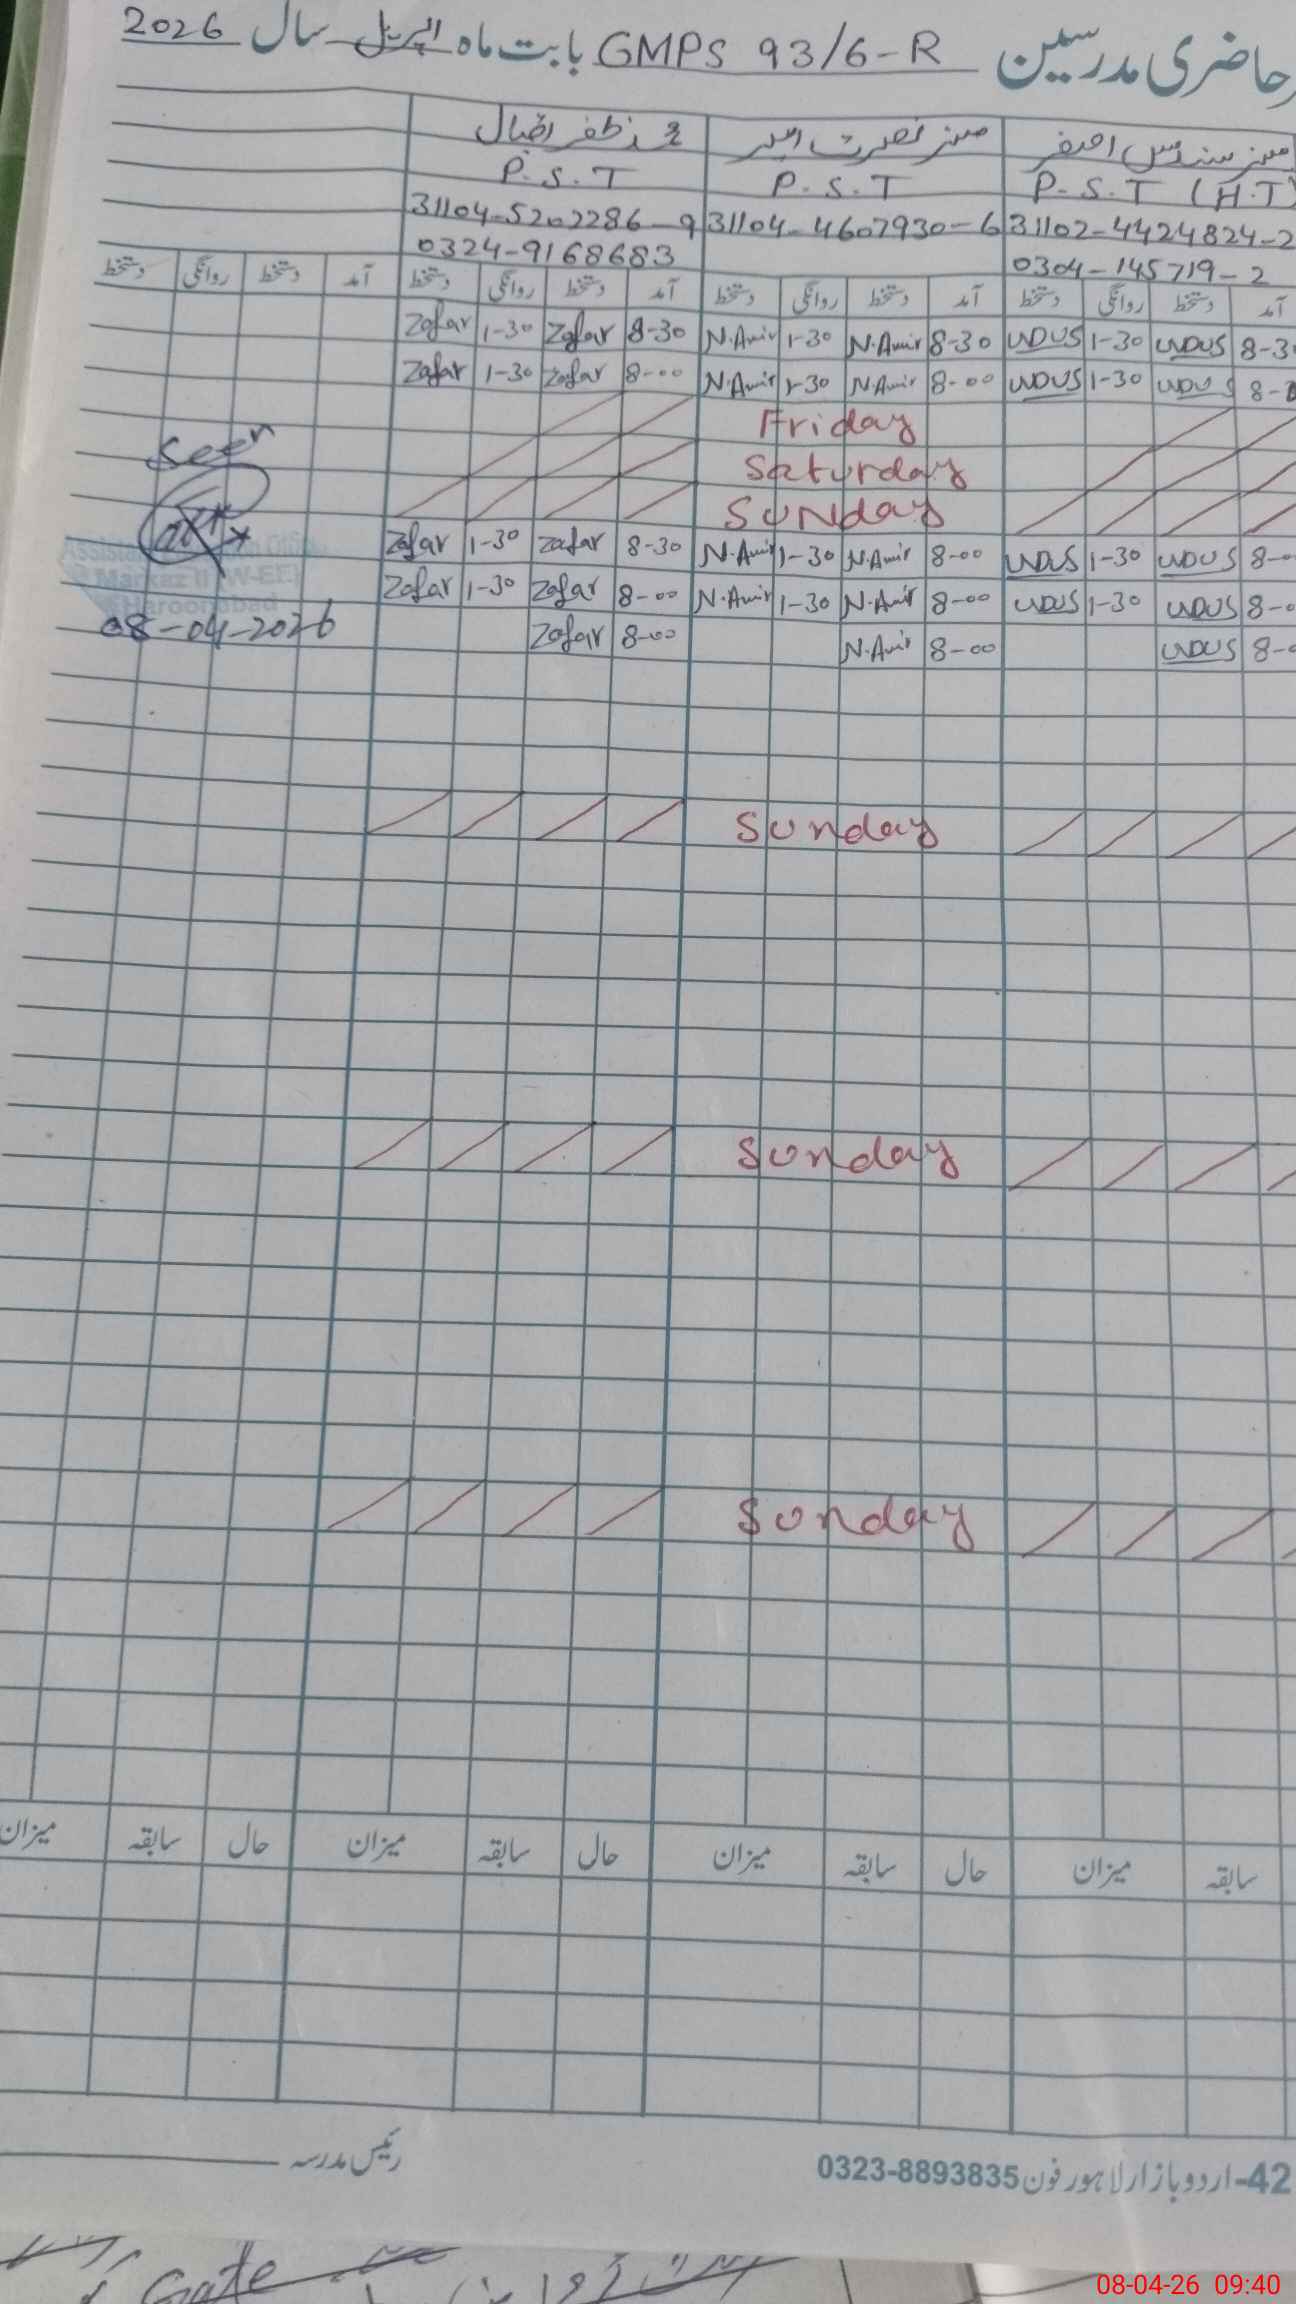 حاضری مدرسین GMPS 93/6-R بابت ماہ اپریل سال 2026
مسز سندس اصغر مسز نصرت امیر محمد ظفر اقبال
P.S.T (H.T) P.S.T P.S.T
31102-4424824-2 31104-4607930-6 31104-5202286-9
0304-145719-2 0324-9168683
آمد دستخط روانگی دستخط آمد دستخط روانگی دستخط آمد دستخط روانگی دستخط آمد دستخط روانگی دستخط
1-30 8-30 N.Amir 1-30 N.Amir 8-30 Zafar 1-30 Zafar
1-30 8-00 N.Amir 1-30 N.Amir 8-00 Zafar 1-30 Zafar
Friday
Saturday
Sunday
Seen
1-30 8-00 N.Amir 1-30 N.Amir 8-30 Zafar 1-30 Zafar
1-30 8-00 N.Amir 1-30 N.Amir 8-00 Zafar 1-30 Zafar
8-00 N.Amir 8-00 Zafar
Markaz (W-EE)
Haroonabad
08-04-2026
Sunday
Sunday
Sunday
سابقہ میزان حال سابقہ میزان حال سابقہ میزان حال سابقہ میزان
رئیس مدرسہ
42-اردو بازار لاہور فون 0323-8893835
Gate
08-04-26 09:40